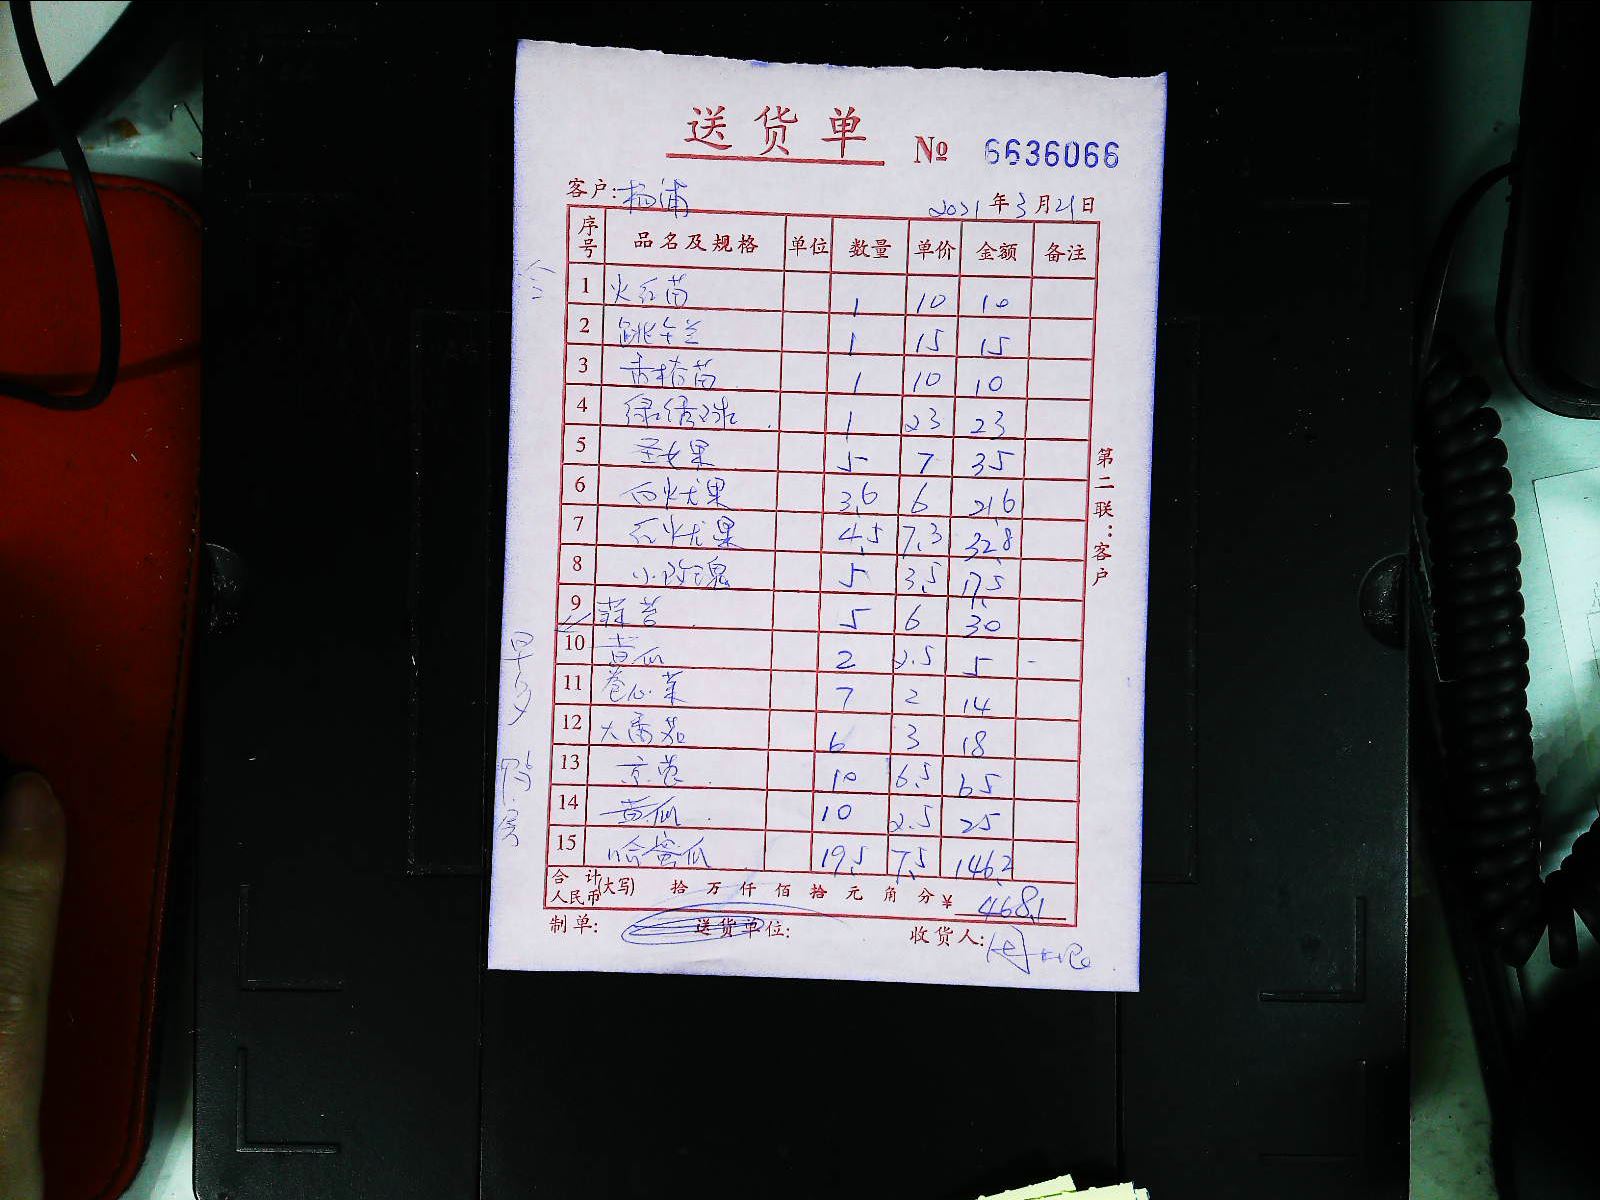 送货单 № 6636066
客户:杨浦 2021年3月21日
序号 品名及规格 单位 数量 单价 金额 备注
1 火红苗 1 10 10
2 跳午兰 1 15 15
3 苗 1 10 10
4 绿绣球 1 23 23
5 圣女果 5 7 35
6 白火龙果 3.6 6 21.6
7 红火龙果 4.5 7.3 32.8
8 小玫瑰 5 3.5 17.5
9 蒜苔 5 6 30
10 黄瓜 2 2.5 5 -
11 卷心菜 7 2 14
12 大番茄 6 3 18
13 京葱 10 6.5 65
14 黄瓜 10 2.5 25
15 哈蜜瓜 19.5 7.5 146.2
合计人民币(大写) 拾 万 仟 佰 拾 元 角 分 ¥ 468.1
制单: 送货单位: 收货人:
第二联:客户